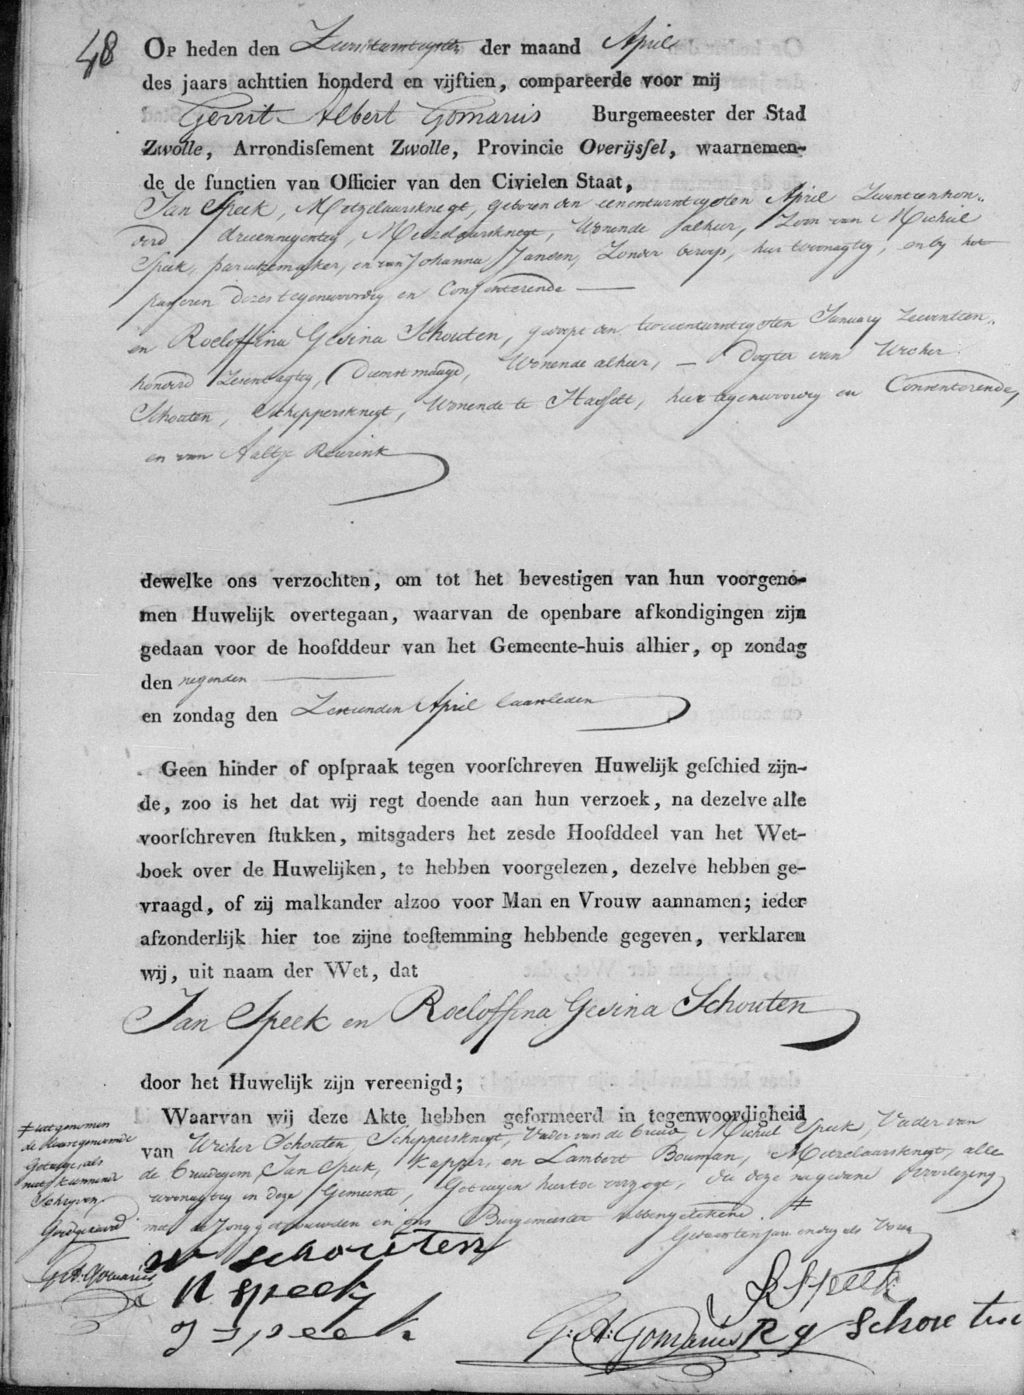 48
Op heden den Zesentwintigsten der maand April
des jaars achttien honderd en vijftien, compareerde voor mij
Gerrit Albert Gomarus Burgemeester der Stad
Zwolle, Arrondissement Zwolle, Provincie Overijssel, waarnemen-
de de functien van Officier van den Civielen Staat,
Jan Speek, Metzelaarsknegt, geboren den eenentwintigsten April Zeventienhon-
derd drieennegentig, Metzelaarsknegt, Wonende alhier, Zoon van Michiel
Speek, paruikemaker, en van Johanna Jansen, Zonder beroep, hier woonagtig, en bij het
passeren dezes tegenwoordig en Consenterende
en Roeloffina Gesina Schouten, gedoopt den tweeentwintigsten January Zeventien-
honderd Zesentagtig, Dienstmaagd, Wonende alhier, Dogter van Wicher
Schouten, Schippersknegt, Wonende te Hasselt, hier tegenwoordig en Consenterende,
en van Aaltje Reurink
dewelke ons verzochten, om tot het bevestigen van hun voorgeno-
men Huwelijk overtegaan, waarvan de openbare afkondigingen zijn
gedaan voor de hoofddeur van het Gemeente-huis alhier, op zondag
den negenden
en zondag den Zestienden April laatsleden
Geen hinder of opspraak tegen voorschreven Huwelijk geschied zijn-
de, zoo is het dat wij regt doende aan hun verzoek, na dezelve alle
voorschreven stukken, mitsgaders het zesde Hoofddeel van het Wet-
boek over de Huwelijken, te hebben voorgelezen, dezelve hebben ge-
vraagd, of zij malkander alzoo voor Man en Vrouw aannamen; ieder
afzonderlijk hier toe zijne toestemming hebbende gegeven, verklaren
wij, uit naam der Wet, dat
Jan Speek en Roeloffina Gesina Schouten
door het Huwelijk zijn vereenigd;
Waarvan wij deze Akte hebben geformeerd in tegenwoordigheid
van Wicher Schouten, Schippersknegt, Vader van de bruid, Michiel Speek, Vader van
de bruidegom, Jan Speek, Kapper, en Lambert Bouman, Metzelaarsknegt, alle
woonagtig in deze Gemeente, Getuigen hiertoe verzogt, die deze na gedane voorlezing
met de Jong getrouwden en ons Burgemeester hebben getekend. ≠
Gedaan ten jare en dag als boven
≠ uitgenomen
de laatstgenoemde
Getuige, als
niet kunnende
Schrijven.
Goedgekeurd
G A Gomarus
W Schouten
M Speek
J Speek
J Speek
G: A: Gomarus
R g Schoute